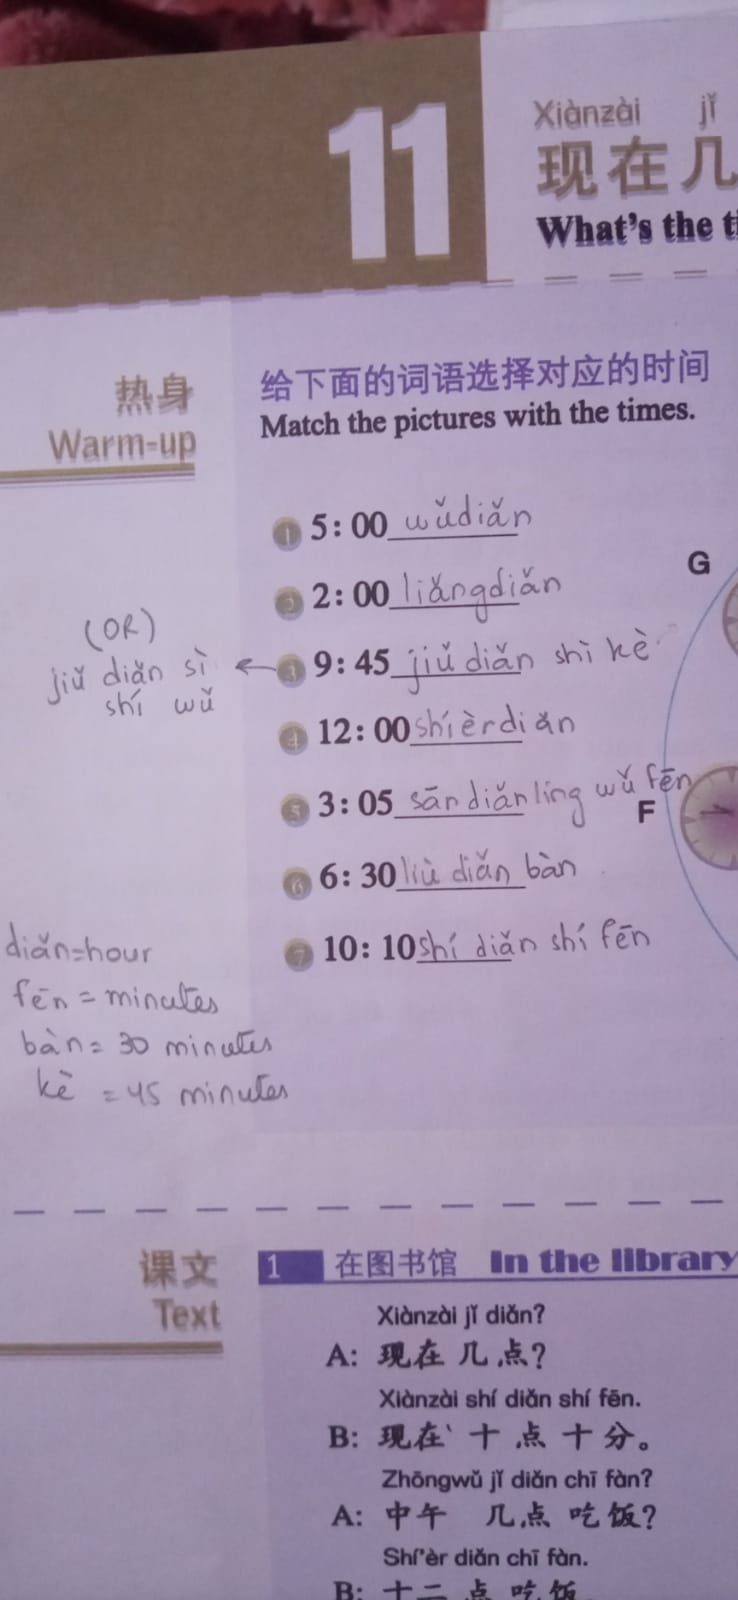 11
Xiànzài jǐ
现在几
What's the ti
热身
Warm-up
给下面的词语选择对应的时间
Match the pictures with the times.
1 5:00 wǔdiǎn
G
2 2:00 liǎngdiǎn
(OR)
jiǔ diǎn sì
shí wǔ
3 9:45 jiǔ diǎn shì kè
4 12:00 shíèrdiǎn
5 3:05 sān diǎn líng wǔ fēn
F
6 6:30 liù diǎn bàn
7 10:10 shí diǎn shí fēn
diǎn=hour
fēn = minutes
bàn= 30 minutes
kè = 45 minutes
课文
Text
1 在图书馆 In the library
Xiànzài jǐ diǎn?
A: 现在几点?
Xiànzài shí diǎn shí fēn.
B: 现在十点十分。
Zhōngwǔ jǐ diǎn chī fàn?
A: 中午 几点吃饭?
Shí'èr diǎn chī fàn.
B: 十二点吃饭